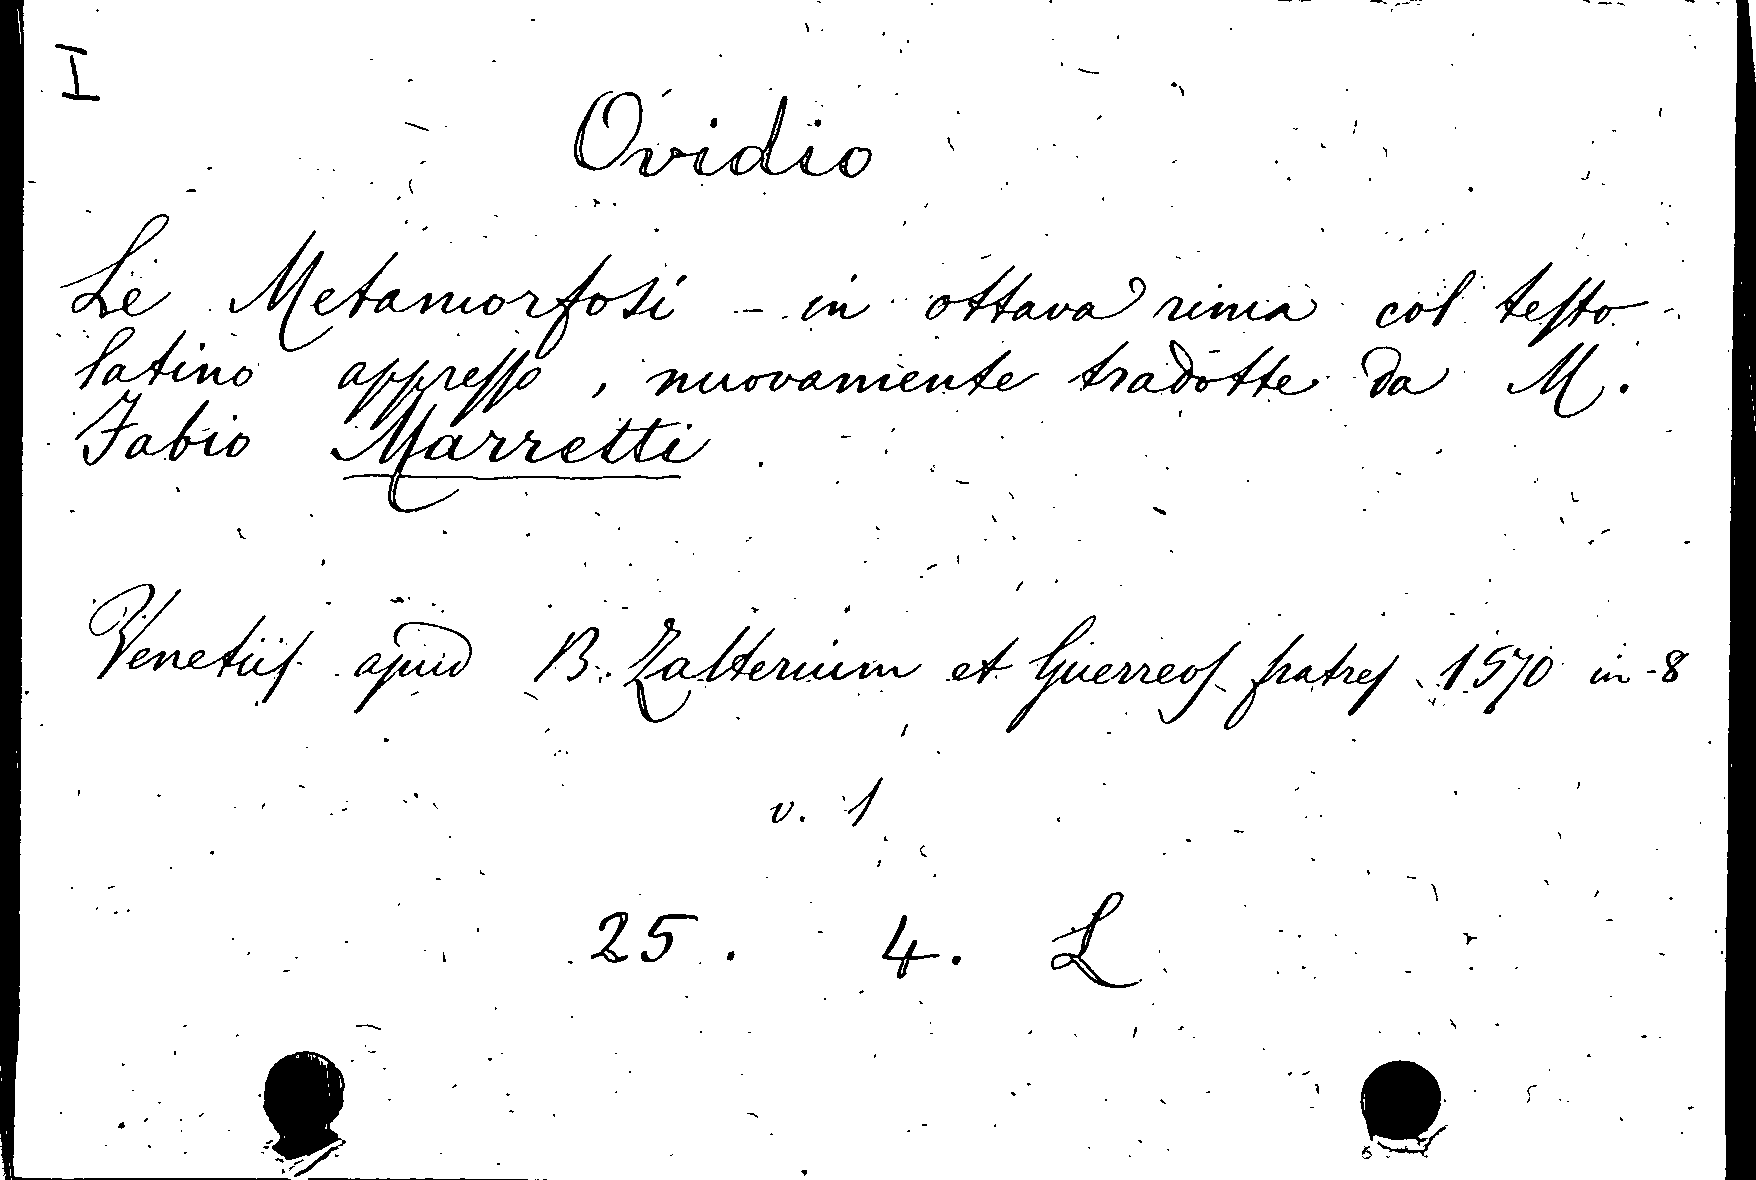 I
Ovidio
Le Metamorfosi - in ottava rima col teſto
latino appreſſo, nuovamente tradotte da M.
Fabio Marretti
Venetiiſ apud B. Zalterium et Guerreoſ fratreſ 1570 in-8
v. 1
25. 4. L